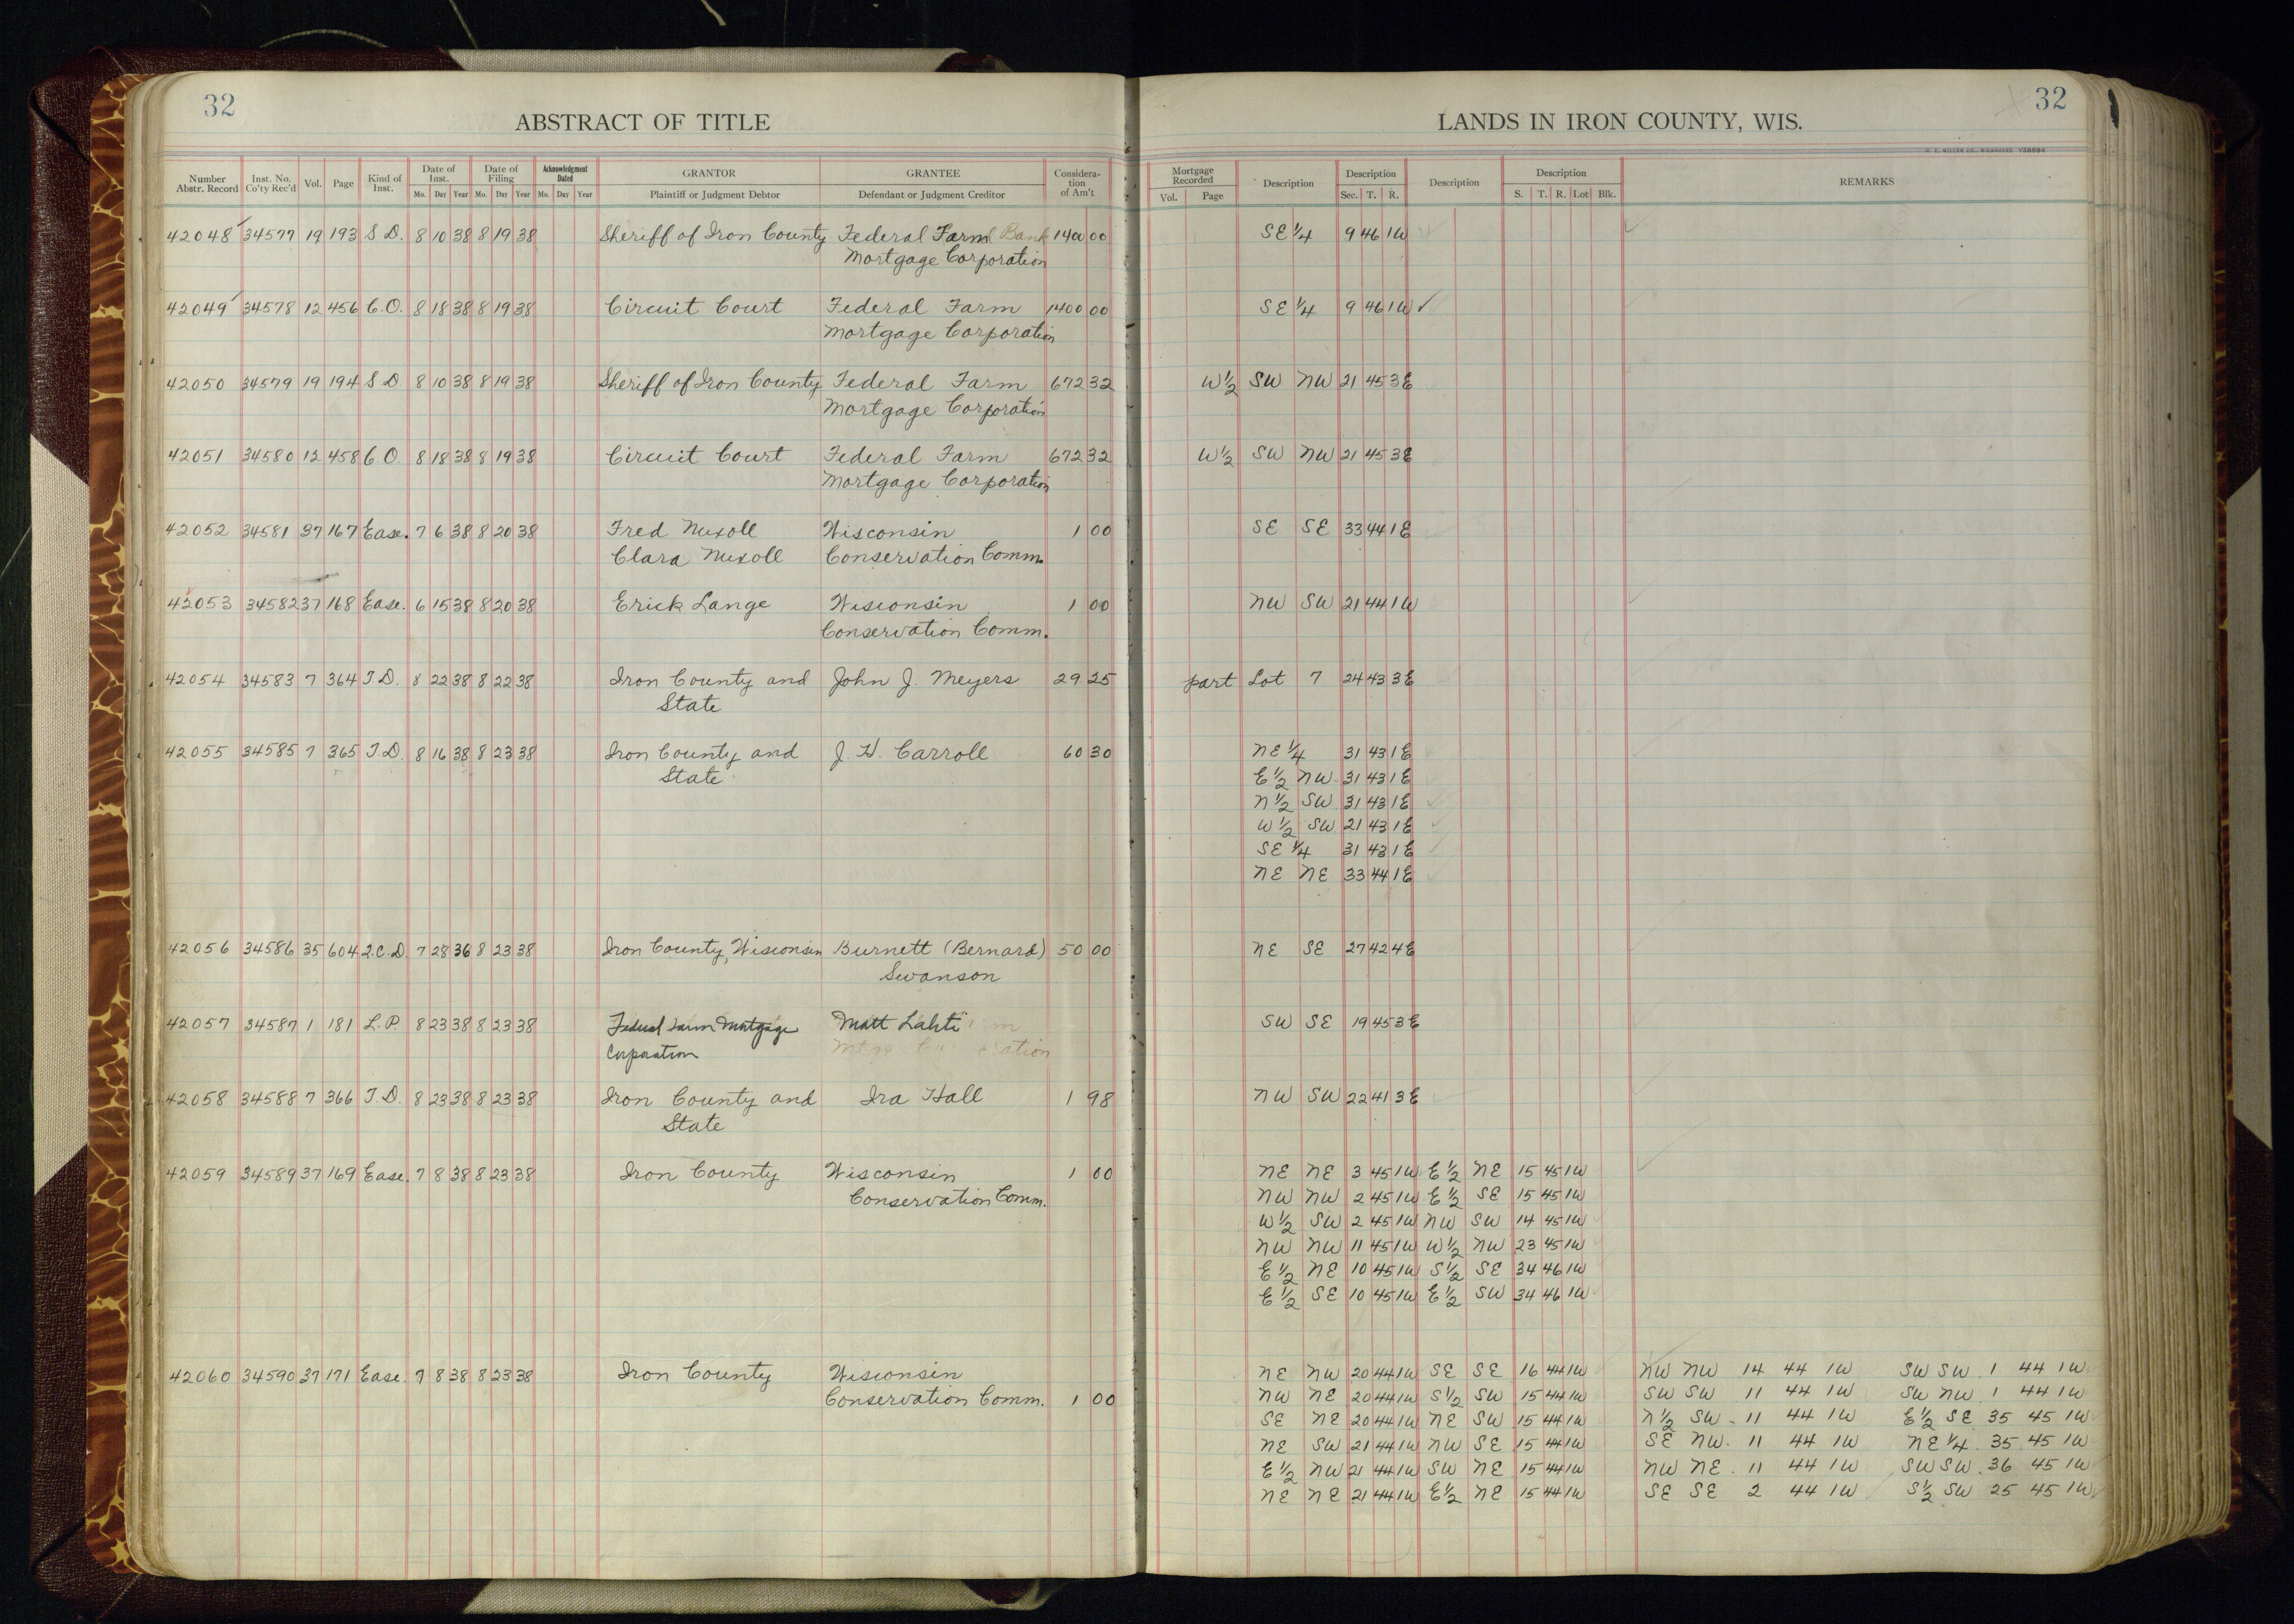 32
ABSTRACT OF TITLE
LANDS IN IRON COUNTY, WIS.
32
H. C. MILLER CO., MILWAUKEE
Number Abstr. Record Inst. No. Co'ty Rec'd Vol. Page Kind of Inst. Date of Inst. Mo. Day Year Date of Filing Mo. Day Year Acknowledgment Dated Mo. Day Year GRANTOR Plaintiff or Judgment Debtor GRANTEE Defendant or Judgment Creditor Considera-tion of Am't Mortgage Recorded Vol. Page Description Description Sec. T. R. Description Description S. T. R. Lot Blk. REMARKS
42048 34577 19 193 S D. 8 10 38 8 19 38 Sheriff of Iron County Federal Farm Bank 1400 00 SE 1/4 9 46 1W
Mortgage Corporation
42049 34578 12 456 C.O. 8 18 38 8 19 38 Circuit Court Federal Farm 1400 00 SE 1/4 9 46 1W ✓
Mortgage Corporation
42050 34579 19 194 S D 8 10 38 8 19 38 Sheriff of Iron County Federal Farm 672 32 W 1/2 SW NW 21 45 3E
Mortgage Corporation
42051 34580 12 458 C O. 8 18 38 8 19 38 Circuit Court Federal Farm 672 32 W 1/2 SW NW 21 45 3E
Mortgage Corporation
42052 34581 37 167 Ease. 7 6 38 8 20 38 Fred Nuxoll Wisconsin 1 00 SE SE 33 44 1E
Clara Nuxoll Conservation Comm.
42053 34582 37 168 Ease. 6 15 38 8 20 38 Erick Lange Wisconsin 1 00 NW SW 21 44 1W
Conservation Comm.
42054 34583 7 364 T D. 8 22 38 8 22 38 Iron County and John J. Meyers 29 25 part Lot 7 24 43 3E
State
42055 34585 7 365 T.D. 8 16 38 8 23 38 Iron County and J. H. Carroll 60 30 NE 1/4 31 43 1E
State E 1/2 NW 31 43 1E
N 1/2 SW 31 43 1E
W 1/2 SW 21 43 1E
SE 1/4 31 43 1E
NE NE 33 44 1E
42056 34586 35 604 Q.C.D. 7 28 36 8 23 38 Iron County, Wisconsin Burnett (Bernard) 50 00 NE SE 27 42 4E
Swanson
42057 34587 1 181 L.P. 8 23 38 8 23 38 Federal Farm Mortgage Matt Lahti SW SE 19 45 3E
Corporation
42058 34588 7 366 T.D. 8 23 38 8 23 38 Iron County and Ira Hall 1 98 NW SW 22 41 3E
State
42059 34589 37 169 Ease. 7 8 38 8 23 38 Iron County Wisconsin 1 00 NE NE 3 45 1W E 1/2 NE 15 45 1W
Conservation Comm. NW NW 2 45 1W E 1/2 SE 15 45 1W
W 1/2 SW 2 45 1W NW SW 14 45 1W
NW NW 11 45 1W W 1/2 NW 23 45 1W
E 1/2 NE 10 45 1W S 1/2 SE 34 46 1W
E 1/2 SE 10 45 1W E 1/2 SW 34 46 1W
42060 34590 37 171 Ease. 7 8 38 8 23 38 Iron County Wisconsin NE NW 20 44 1W SE SE 16 44 1W NW NW 14 44 1W SW SW 1 44 1W
Conservation Comm. 1 00 NW NE 20 44 1W S 1/2 SW 15 44 1W SW SW 11 44 1W SW NW 1 44 1W
SE NE 20 44 1W NE SW 15 44 1W N 1/2 SW 11 44 1W E 1/2 SE 35 45 1W
NE SW 21 44 1W NW SE 15 44 1W SE NW 11 44 1W NE 1/4 35 45 1W
E 1/2 NW 21 44 1W SW NE 15 44 1W NW NE 11 44 1W SW SW 36 45 1W
NE NE 21 44 1W E 1/2 NE 15 44 1W SE SE 2 44 1W S 1/2 SW 25 45 1W